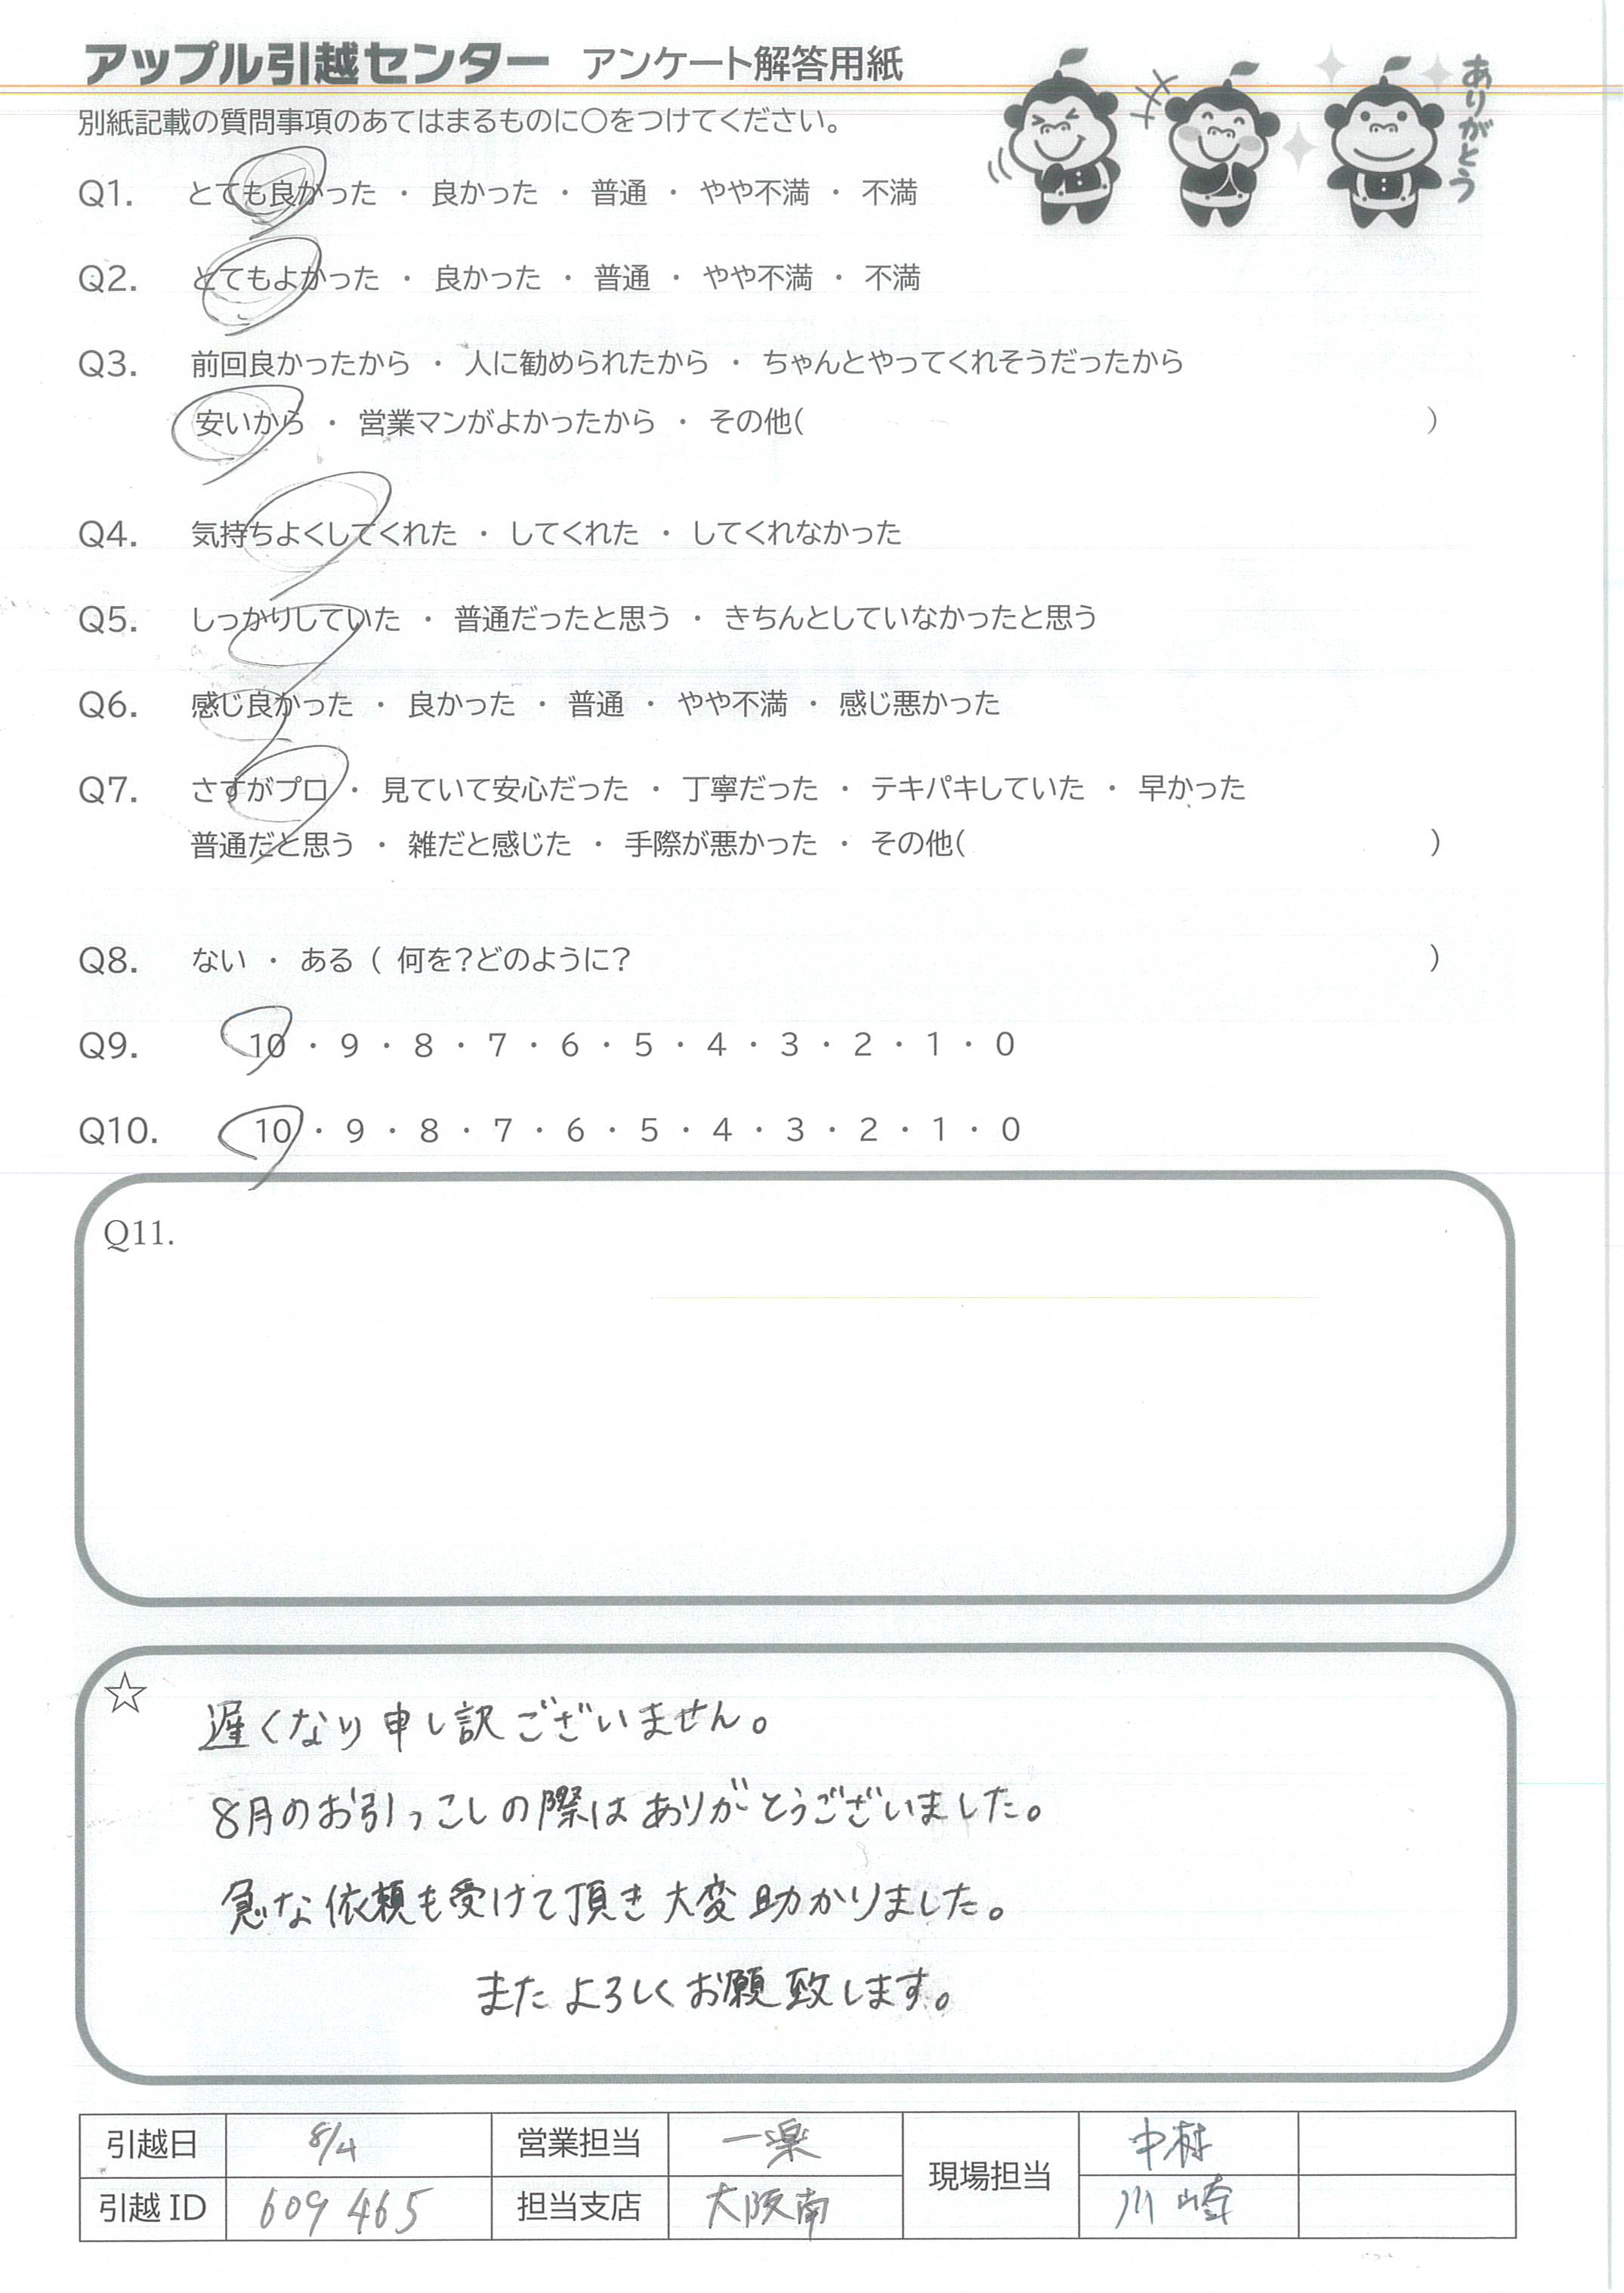 アップル引越センター アンケート解答用紙
ありがとう
別紙記載の質問事項のあてはまるものに○をつけてください。
Q1. とても良かった ・ 良かった ・ 普通 ・ やや不満 ・ 不満
Q2. とてもよかった ・ 良かった ・ 普通 ・ やや不満 ・ 不満
Q3. 前回良かったから ・ 人に勧められたから ・ ちゃんとやってくれそうだったから
安いから ・ 営業マンがよかったから ・ その他( )
Q4. 気持ちよくしてくれた ・ してくれた ・ してくれなかった
Q5. しっかりしていた ・ 普通だったと思う ・ きちんとしていなかったと思う
Q6. 感じ良かった ・ 良かった ・ 普通 ・ やや不満 ・ 感じ悪かった
Q7. さすがプロ ・ 見ていて安心だった ・ 丁寧だった ・ テキパキしていた ・ 早かった
普通だと思う ・ 雑だと感じた ・ 手際が悪かった ・ その他( )
Q8. ない ・ ある ( 何を?どのように? )
Q9. 10 ・ 9 ・ 8 ・ 7 ・ 6 ・ 5 ・ 4 ・ 3 ・ 2 ・ 1 ・ 0
Q10. 10 ・ 9 ・ 8 ・ 7 ・ 6 ・ 5 ・ 4 ・ 3 ・ 2 ・ 1 ・ 0
Q11.
☆ 遅くなり申し訳ございません。
8月のお引っこしの際はありがとうございました。
急な依頼も受けて頂き大変助かりました。
またよろしくお願致します。
引越日 8/4 営業担当 一楽 現場担当 中村
引越ID 609465 担当支店 大阪南 川崎